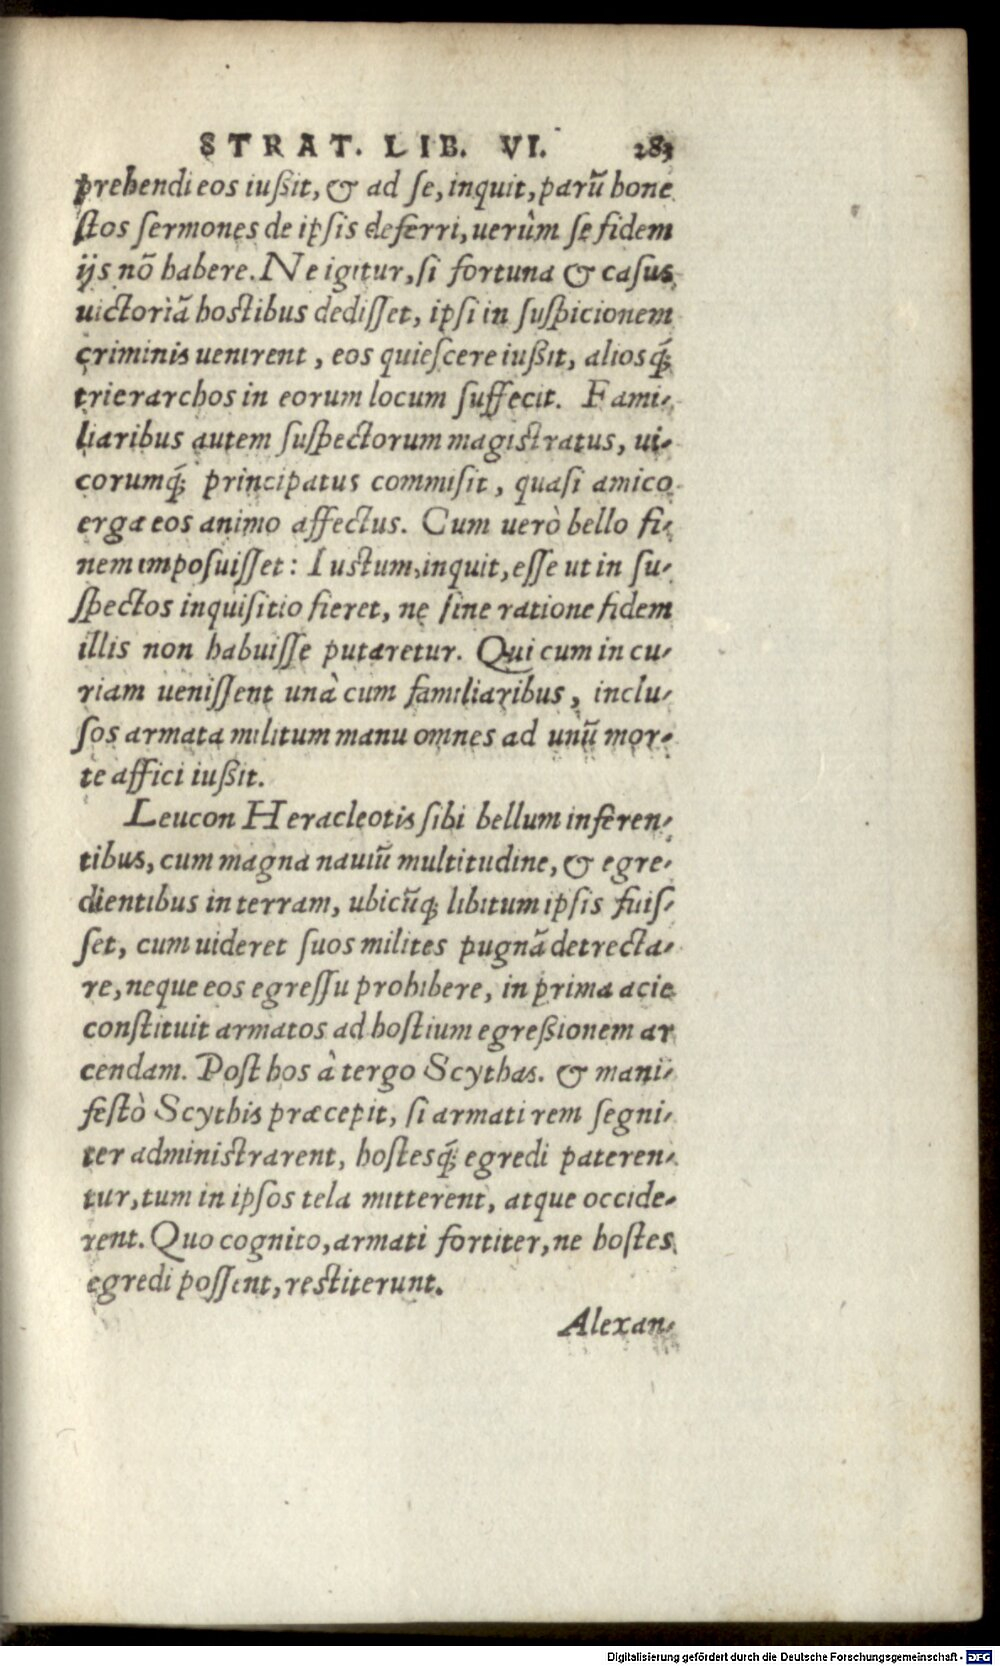 STRAT. LIB. VI. 283
prehendi eos iußit, & ad se, inquit, parũ hone
stos sermones de ipsis deferri, uerùm se fidem
ijs nõ habere. Ne igitur, si fortuna & casus
uictoriã hostibus dedisset, ipsi in suspicionem
criminis uenirent, eos quiescere iußit, aliosq́;
trierarchos in eorum locum suffecit. Fami-
liaribus autem suspectorum magistratus, ui-
corumq́; principatus commisit, quasi amico
erga eos animo affectus. Cum uerò bello fi-
nem imposuisset: Iustum, inquit, esse ut in su-
spectos inquisitio fieret, ne sine ratione fidem
illis non habuisse putaretur. Qui cum in cu-
riam uenissent unà cum familiaribus, inclu-
sos armata militum manu omnes ad unũ mor-
te affici iußit.
Leucon Heracleotis sibi bellum inferen-
tibus, cum magna nauiũ multitudine, & egre-
dientibus in terram, ubicũq; libitum ipsis fuis-
set, cum uideret suos milites pugnã detrecta-
re, neque eos egressu prohibere, in prima acie
constituit armatos ad hostium egreßionem ar
cendam. Post hos à tergo Scythas. & mani-
festò Scythis præcepit, si armati rem segni-
ter administrarent, hostesq́; egredi pateren-
tur, tum in ipsos tela mitterent, atque occide-
rent. Quo cognito, armati fortiter, ne hostes
egredi possent, restiterunt.
Alexan-
Digitalisierung gefördert durch die Deutsche Forschungsgemeinschaft - DFG